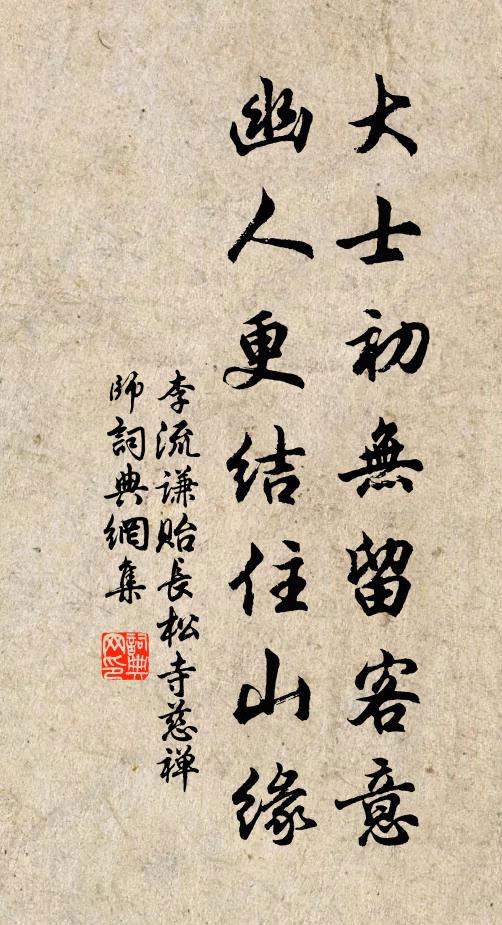 大士初無留客意
幽人更結住山緣
李流謙貽長松寺慈禅
師詞典網集
詞典
网印